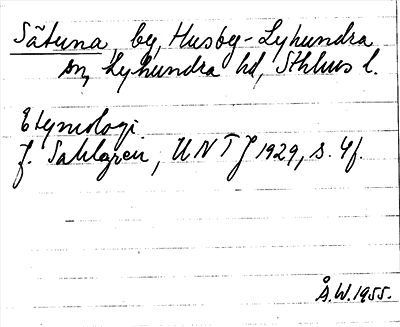 Såtuna, by, Husby-Lyhundra
sn, Lyhundra hd, Sthlms l.
Etymologi.
J. Sahlgren, UNTJ 1929, s. 4f.
Å.W. 1955.